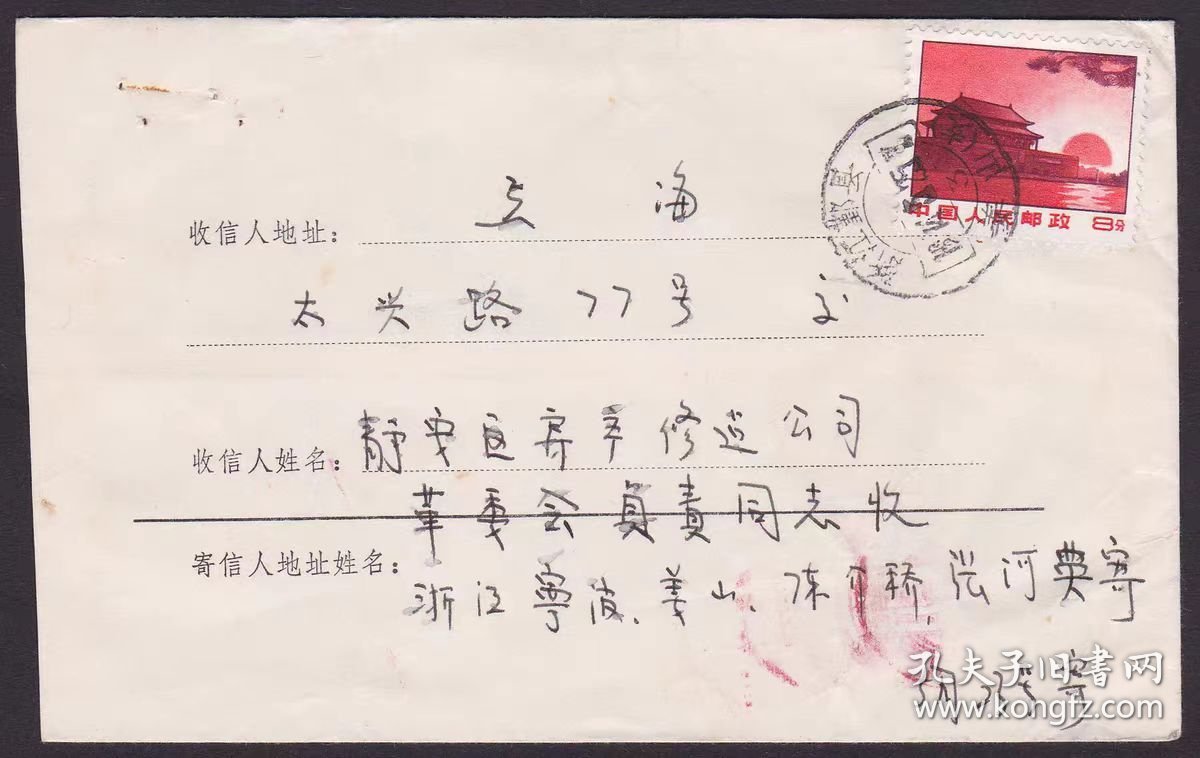 中国人民邮政 8分
收信人地址： 上 海
太 兴 路 77号 交
收信人姓名： 静安区房产修造公司
革委会负责同志收
寄信人地址姓名：
浙江宁波、姜山、陈介桥，张河 寄
孔夫子旧书网
www.kongfz.com